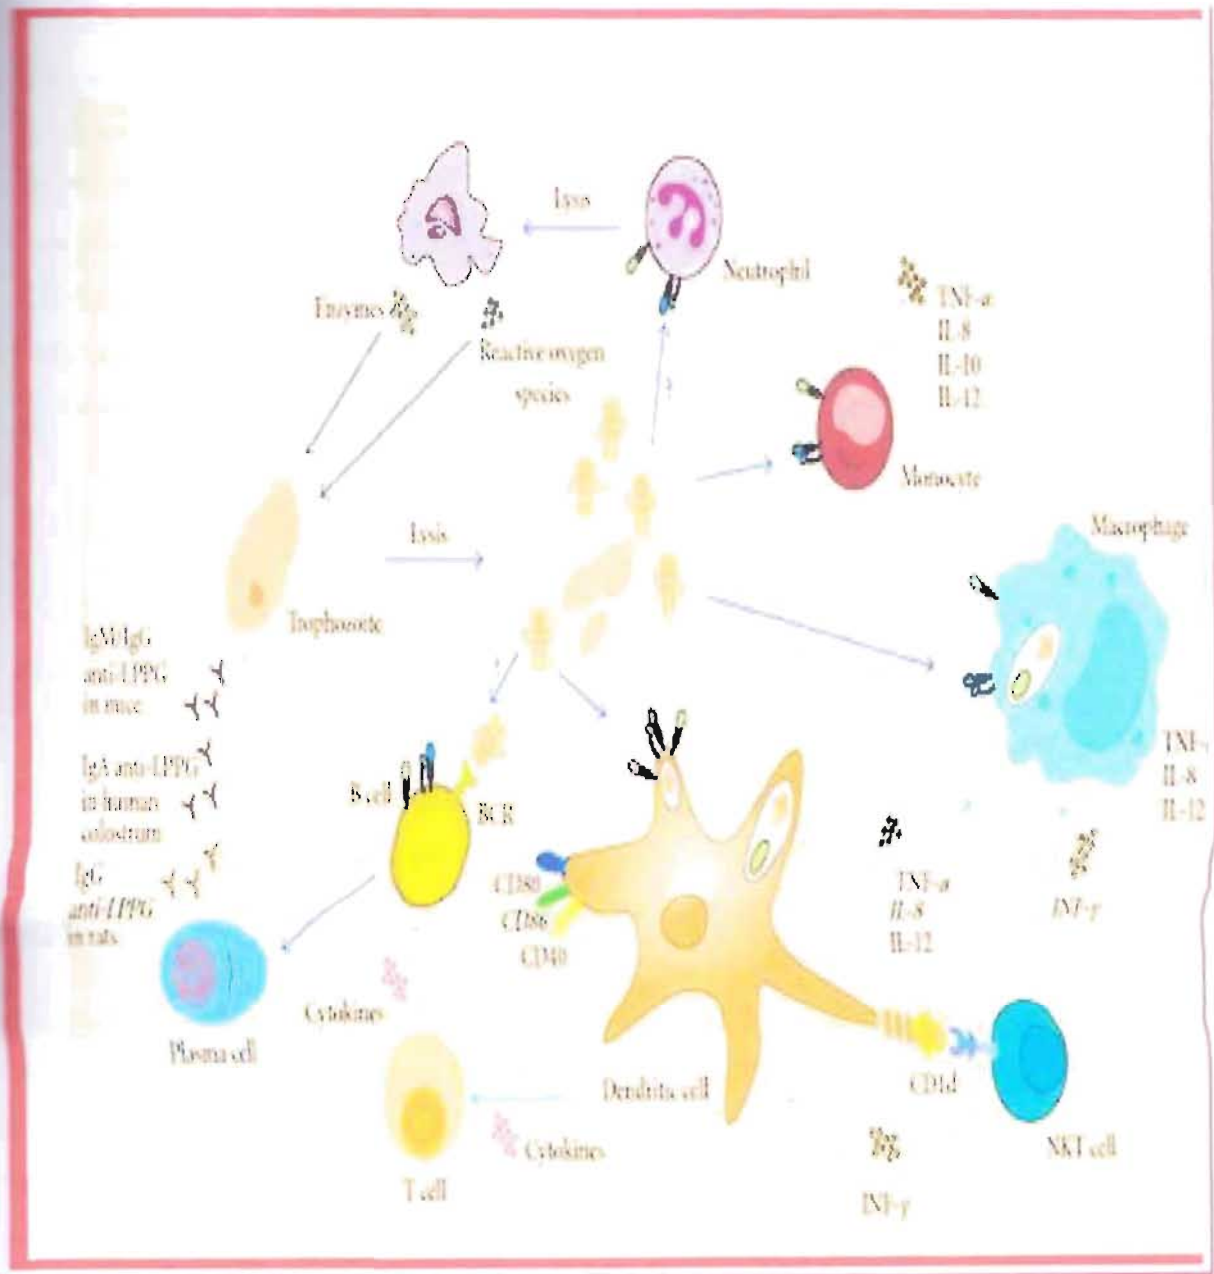 Lysis
Neutrophil
Enzymes
Reactive oxygen
species
TNF-α
IL-8
IL-10
IL-12
?
Monocyte
Macrophage
Lysis
Trophozoite
IgM/IgG
anti-LPPG
in mice
IgA anti-LPPG
in human
colostrum
IgG
anti-LPPG
in rats
B cell
BCR
TNF-
IL-8
IL-12
CD80
CD86
CD40
TNF-α
IL-8
IL-12
INF-γ
Cytokines
Plasma cell
Dendritic cell
CD1d
Cytokines
T cell
NKT cell
INF-γ